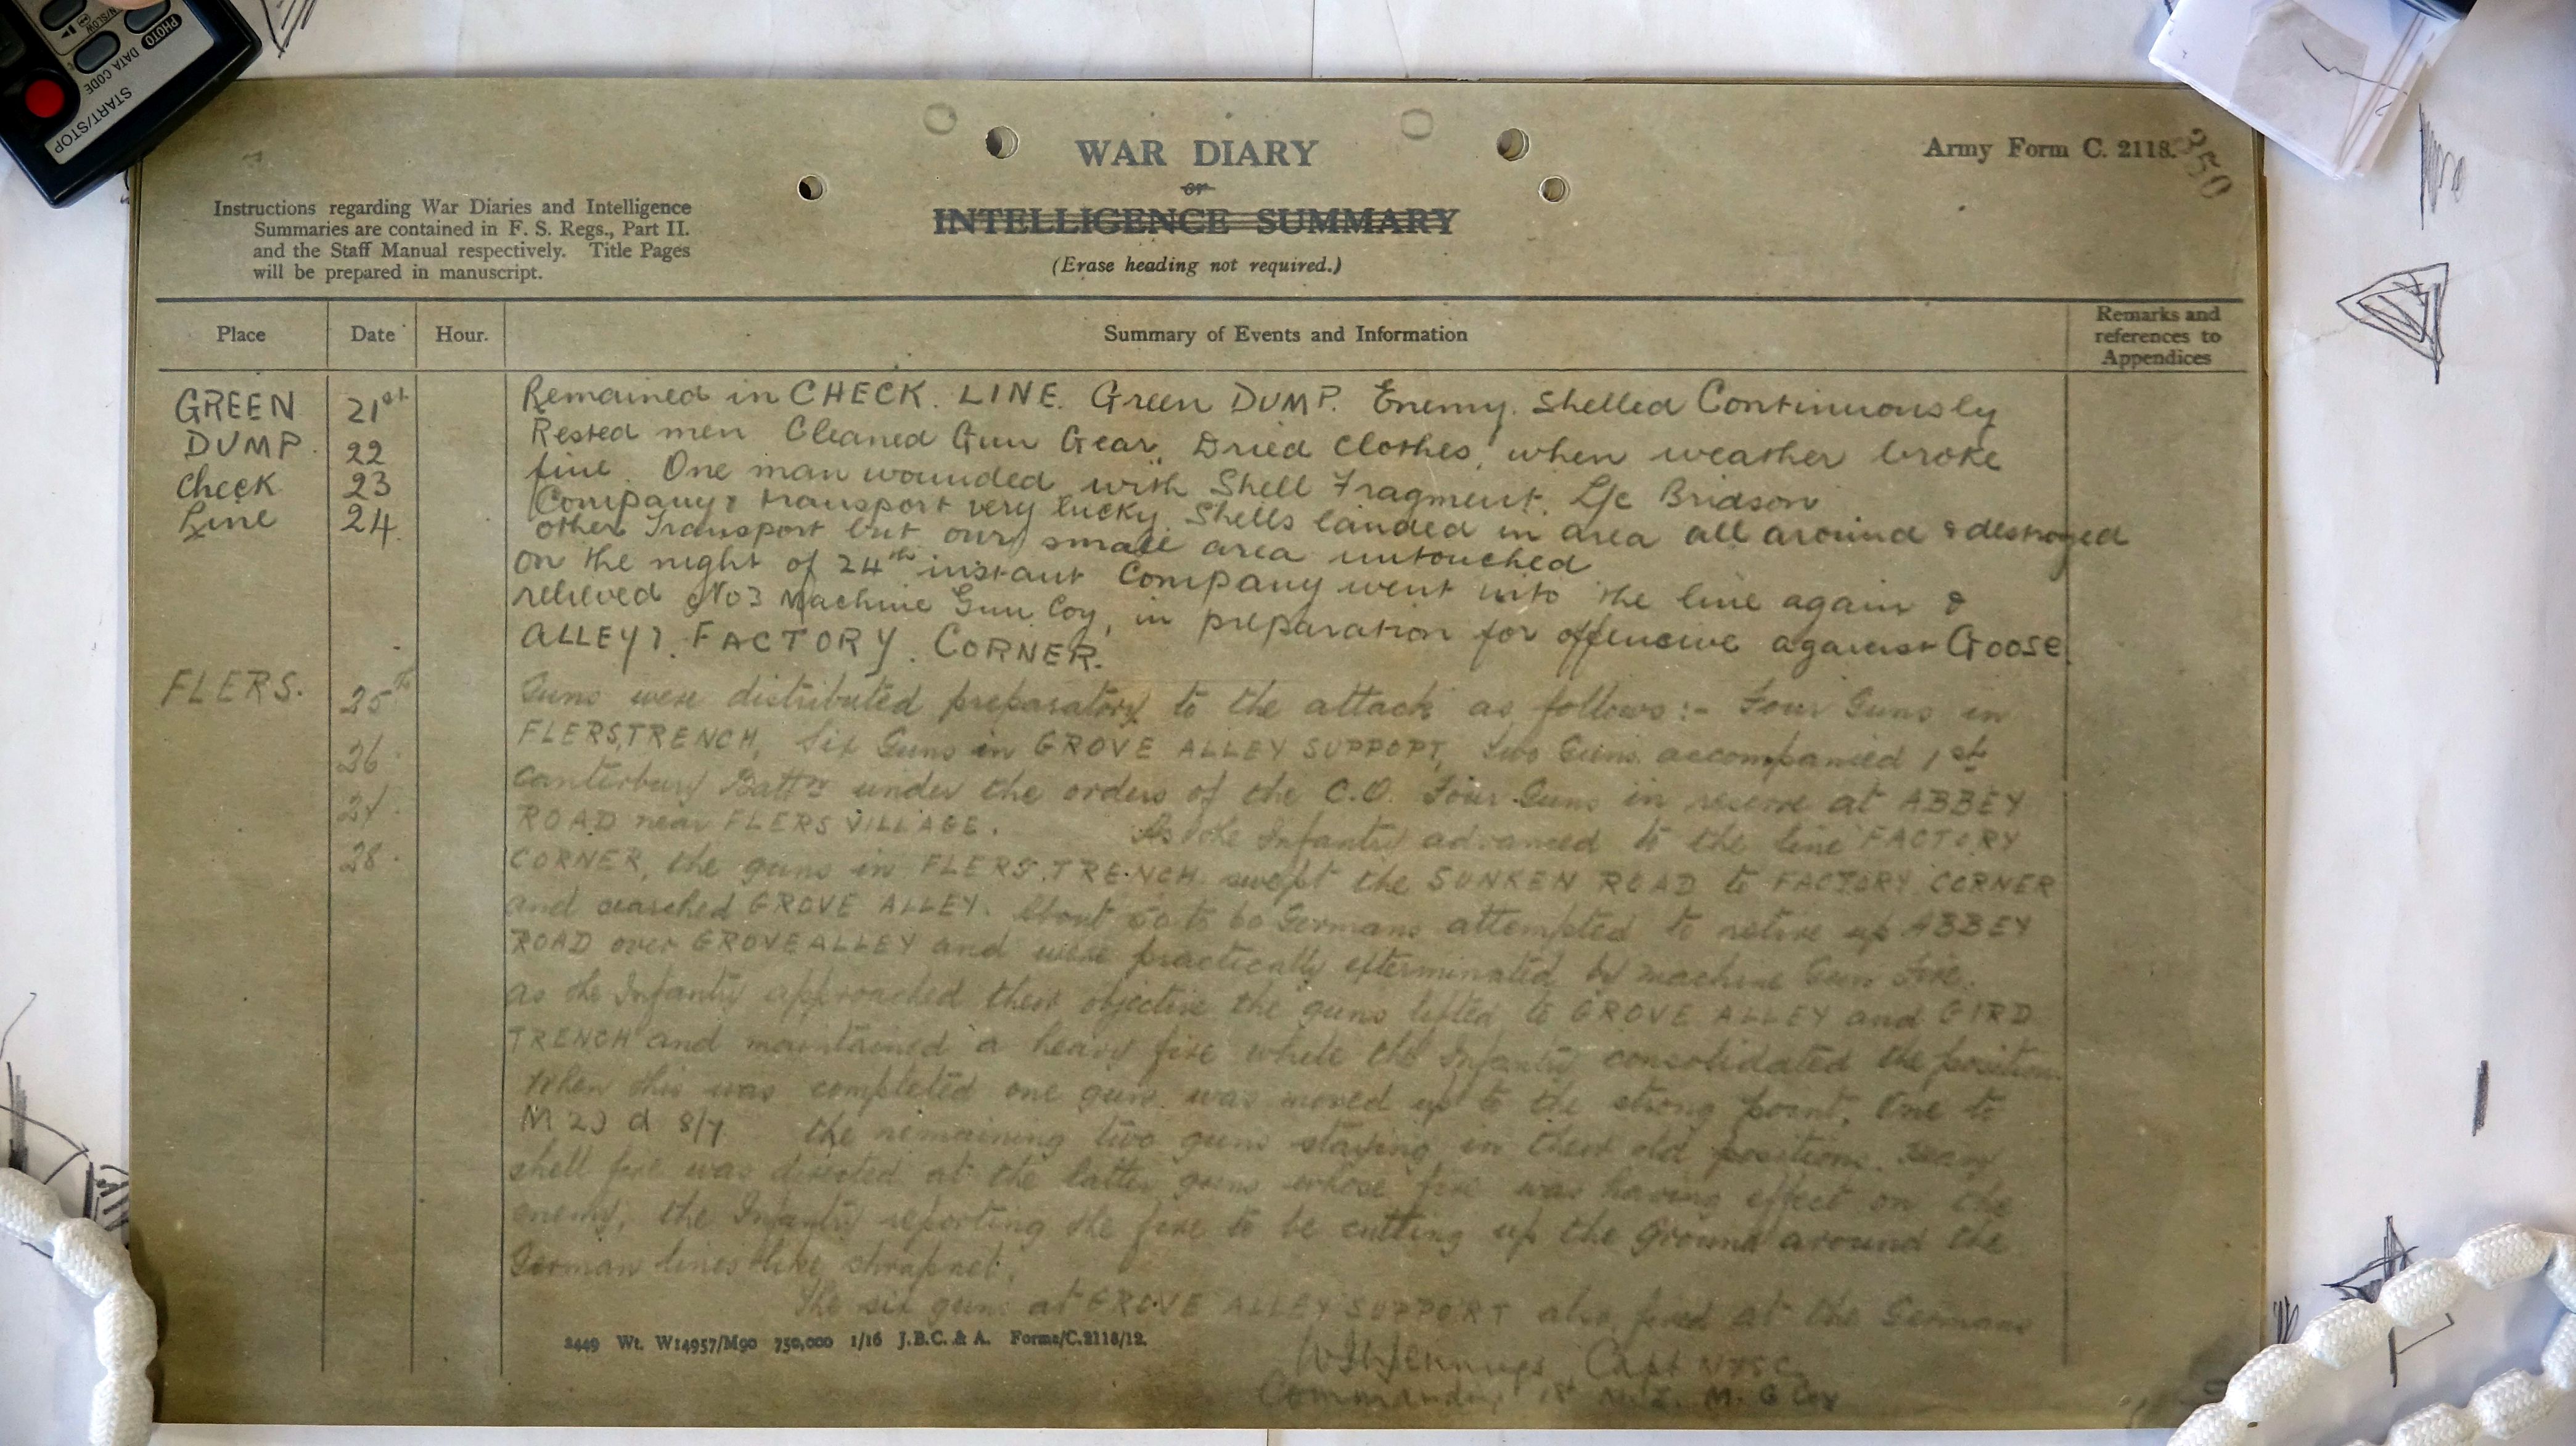 START/STOP
PHOTO
DATA CODE
WAR DIARY
or
INTELLIGENCE SUMMARY
(Erase heading not required.)
Army Form C. 2118.
350
Instructions regarding War Diaries and Intelligence
Summaries are contained in F. S. Regs., Part II.
and the Staff Manual respectively. Title Pages
will be prepared in manuscript.
Place Date Hour. Summary of Events and Information Remarks and references to Appendices
GREEN 21st Remained in CHECK. LINE. Green DUMP. Enemy. Shelled Continuously
DUMP. 22 Rested men Cleaned Gun Gear, Dried Clothes, when weather broke
Check 23 fine. One man wounded with Shell Fragment. L/c Bridson
Line 24. Company transport very lucky. Shells landed in area all around & destroyed
other Transport but our small area untouched
on the night of 24th instant Company went into the line again &
relieved No 3 Machine Gun Coy, in preparation for offensive against Goose
ALLEY. FACTORY. CORNER.
FLERS. 25th Guns were distributed preparatory to the attack as follows:- Four Guns in
26. FLERS TRENCH, Six Guns in GROVE ALLEY SUPPORT, two Guns accompanied 1st
27. Canterbury Battn under the orders of the C.O. Four Guns in reserve at ABBEY
ROAD near FLERS VILLAGE. As the Infantry advanced to the line FACTORY
28. CORNER, the guns in FLERS. TRENCH swept the SUNKEN ROAD to FACTORY CORNER
and searched GROVE ALLEY. About 50 to 60 Germans attempted to retire up ABBEY
ROAD over GROVE ALLEY and were practically exterminated by machine Gun fire.
As the Infantry approached their objective the guns lifted to GROVE ALLEY and GIRD
TRENCH and maintained a heavy fire while the Infantry consolidated the position.
When this was completed one gun was moved up to the strong point, One to
M 20 d 8/7 the remaining two guns staying in their old positions. Heavy
shell fire was directed at the latter guns whose fire was having effect on the
enemy, the Infantry reporting the fire to be cutting up the ground around the
German lines like shrapnel.
The six guns at GROVE ALLEY SUPPORT also fired at the Germans
2449 Wt. W14957/M90 750,000 1/16 J.B.C. & A. Forms/C.2118/12.
Capt NZSC
Commanding 1st N.Z. M. G Coy